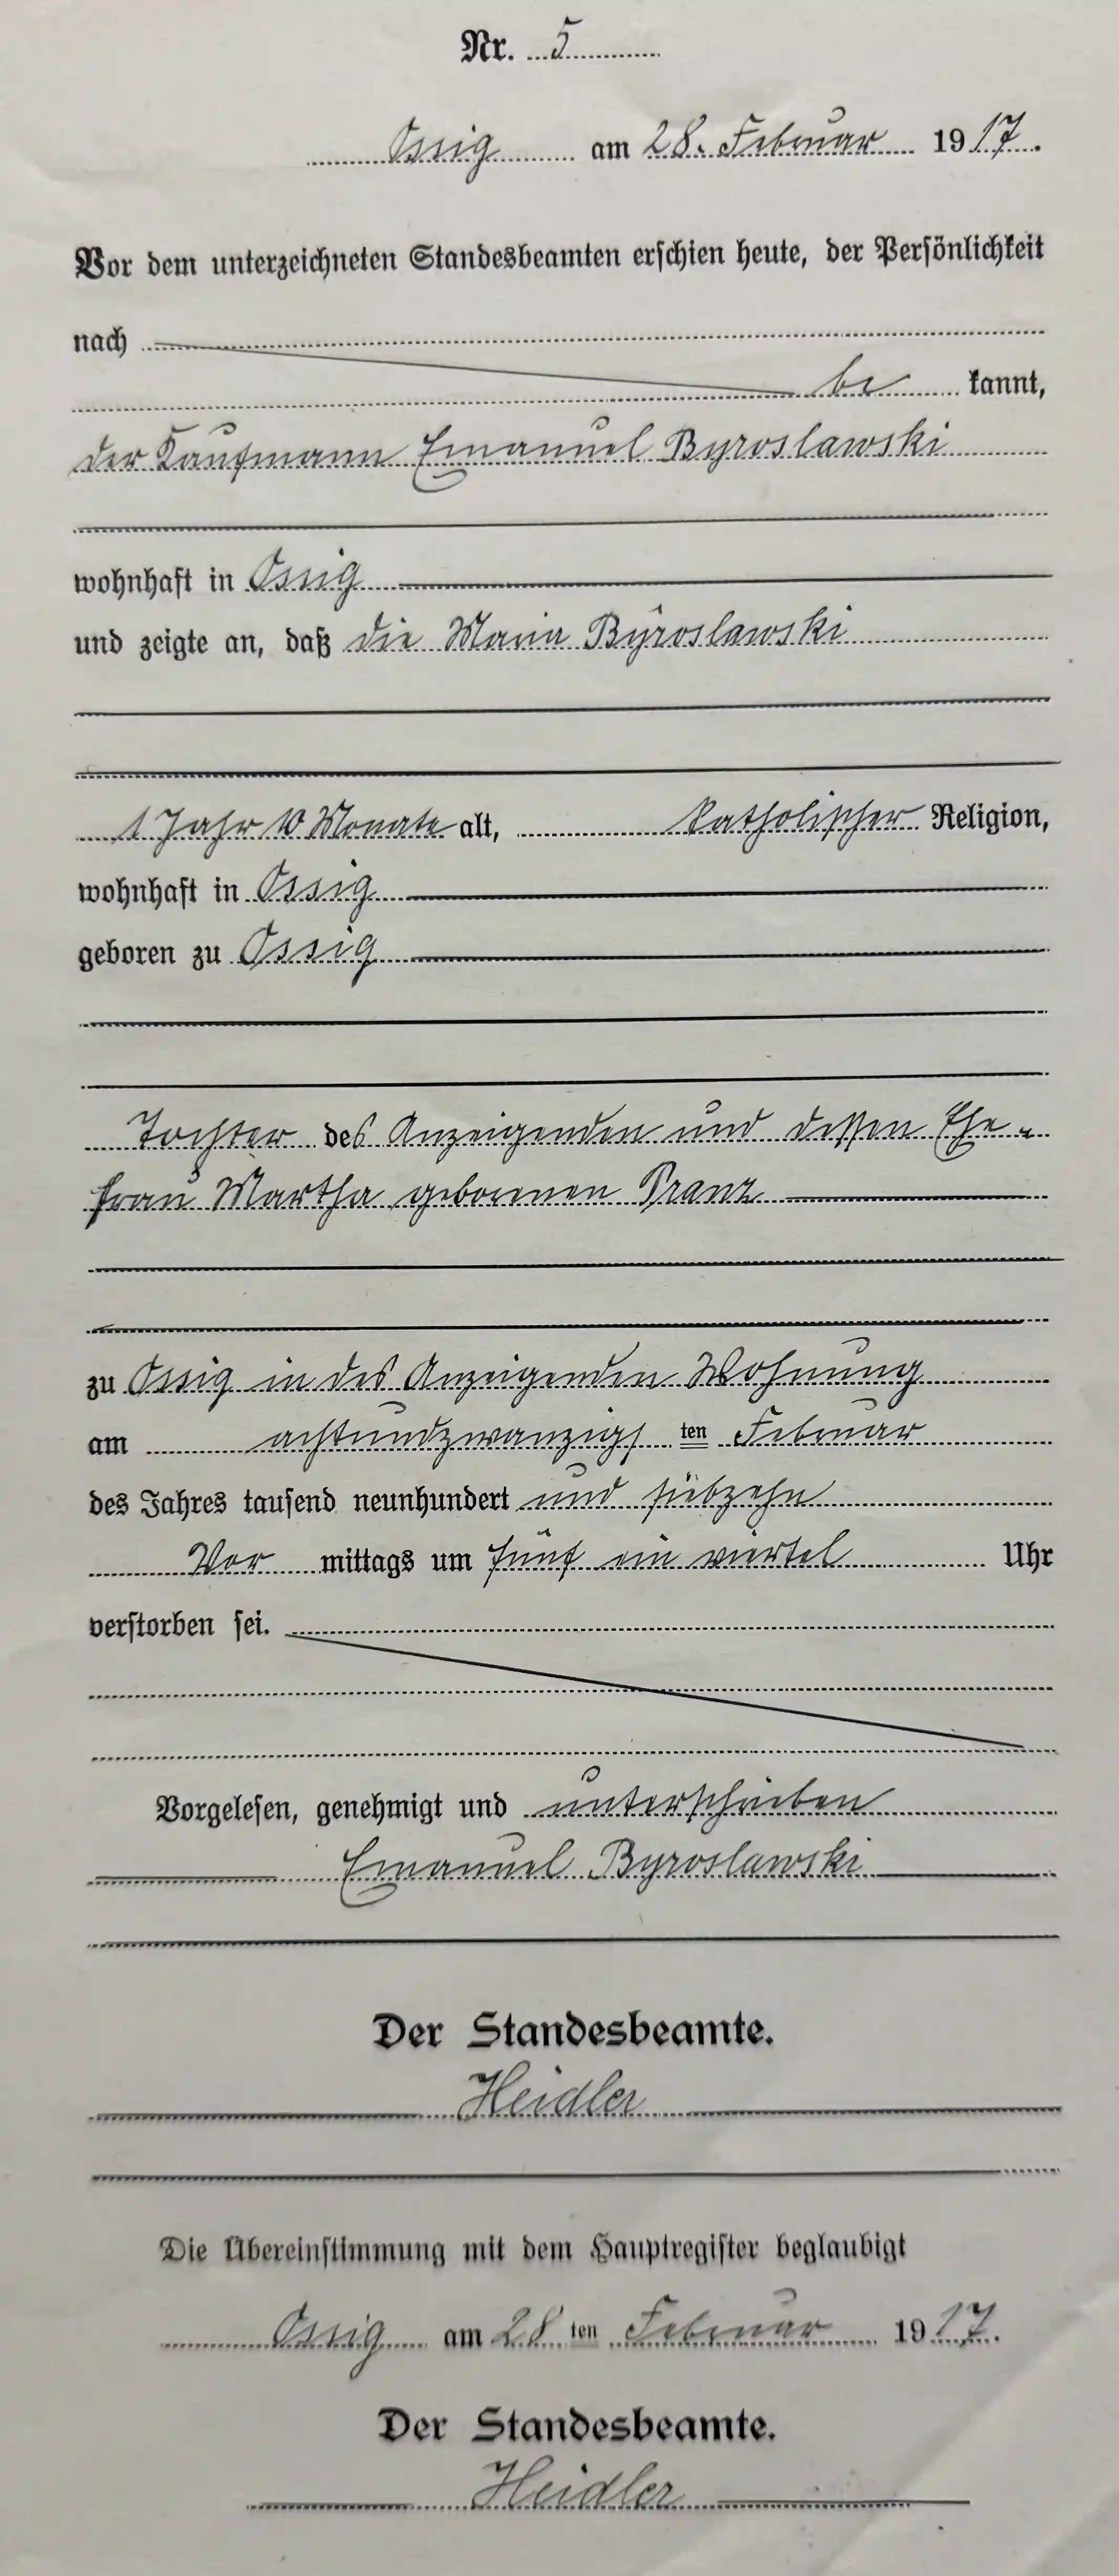 Nr. 5
Ossig am 28. Februar 1917.
Vor dem unterzeichneten Standesbeamten erschien heute, der Persönlichkeit
nach
be kannt,
der Kaufmann Emanuel Byroslawski
wohnhaft in Ossig
und zeigte an, daß die Maria Byroslawski
1 Jahr 10 Monate alt, katholischer Religion,
wohnhaft in Ossig
geboren zu Ossig
Tochter des Anzeigenden und dessen Ehe-
frau Martha geborenen Pranz
zu Ossig in des Anzeigenden Wohnung
am achtundzwanzigs ten Februar
des Jahres tausend neunhundert und siebzehn
Vor mittags um fünf ein viertel Uhr
verstorben sei.
Vorgelesen, genehmigt und unterschrieben
Emanuel Byroslawski
Der Standesbeamte.
Heidler
Die Übereinstimmung mit dem Hauptregister beglaubigt
Ossig am 28 ten Februar 1917.
Der Standesbeamte.
Heidler